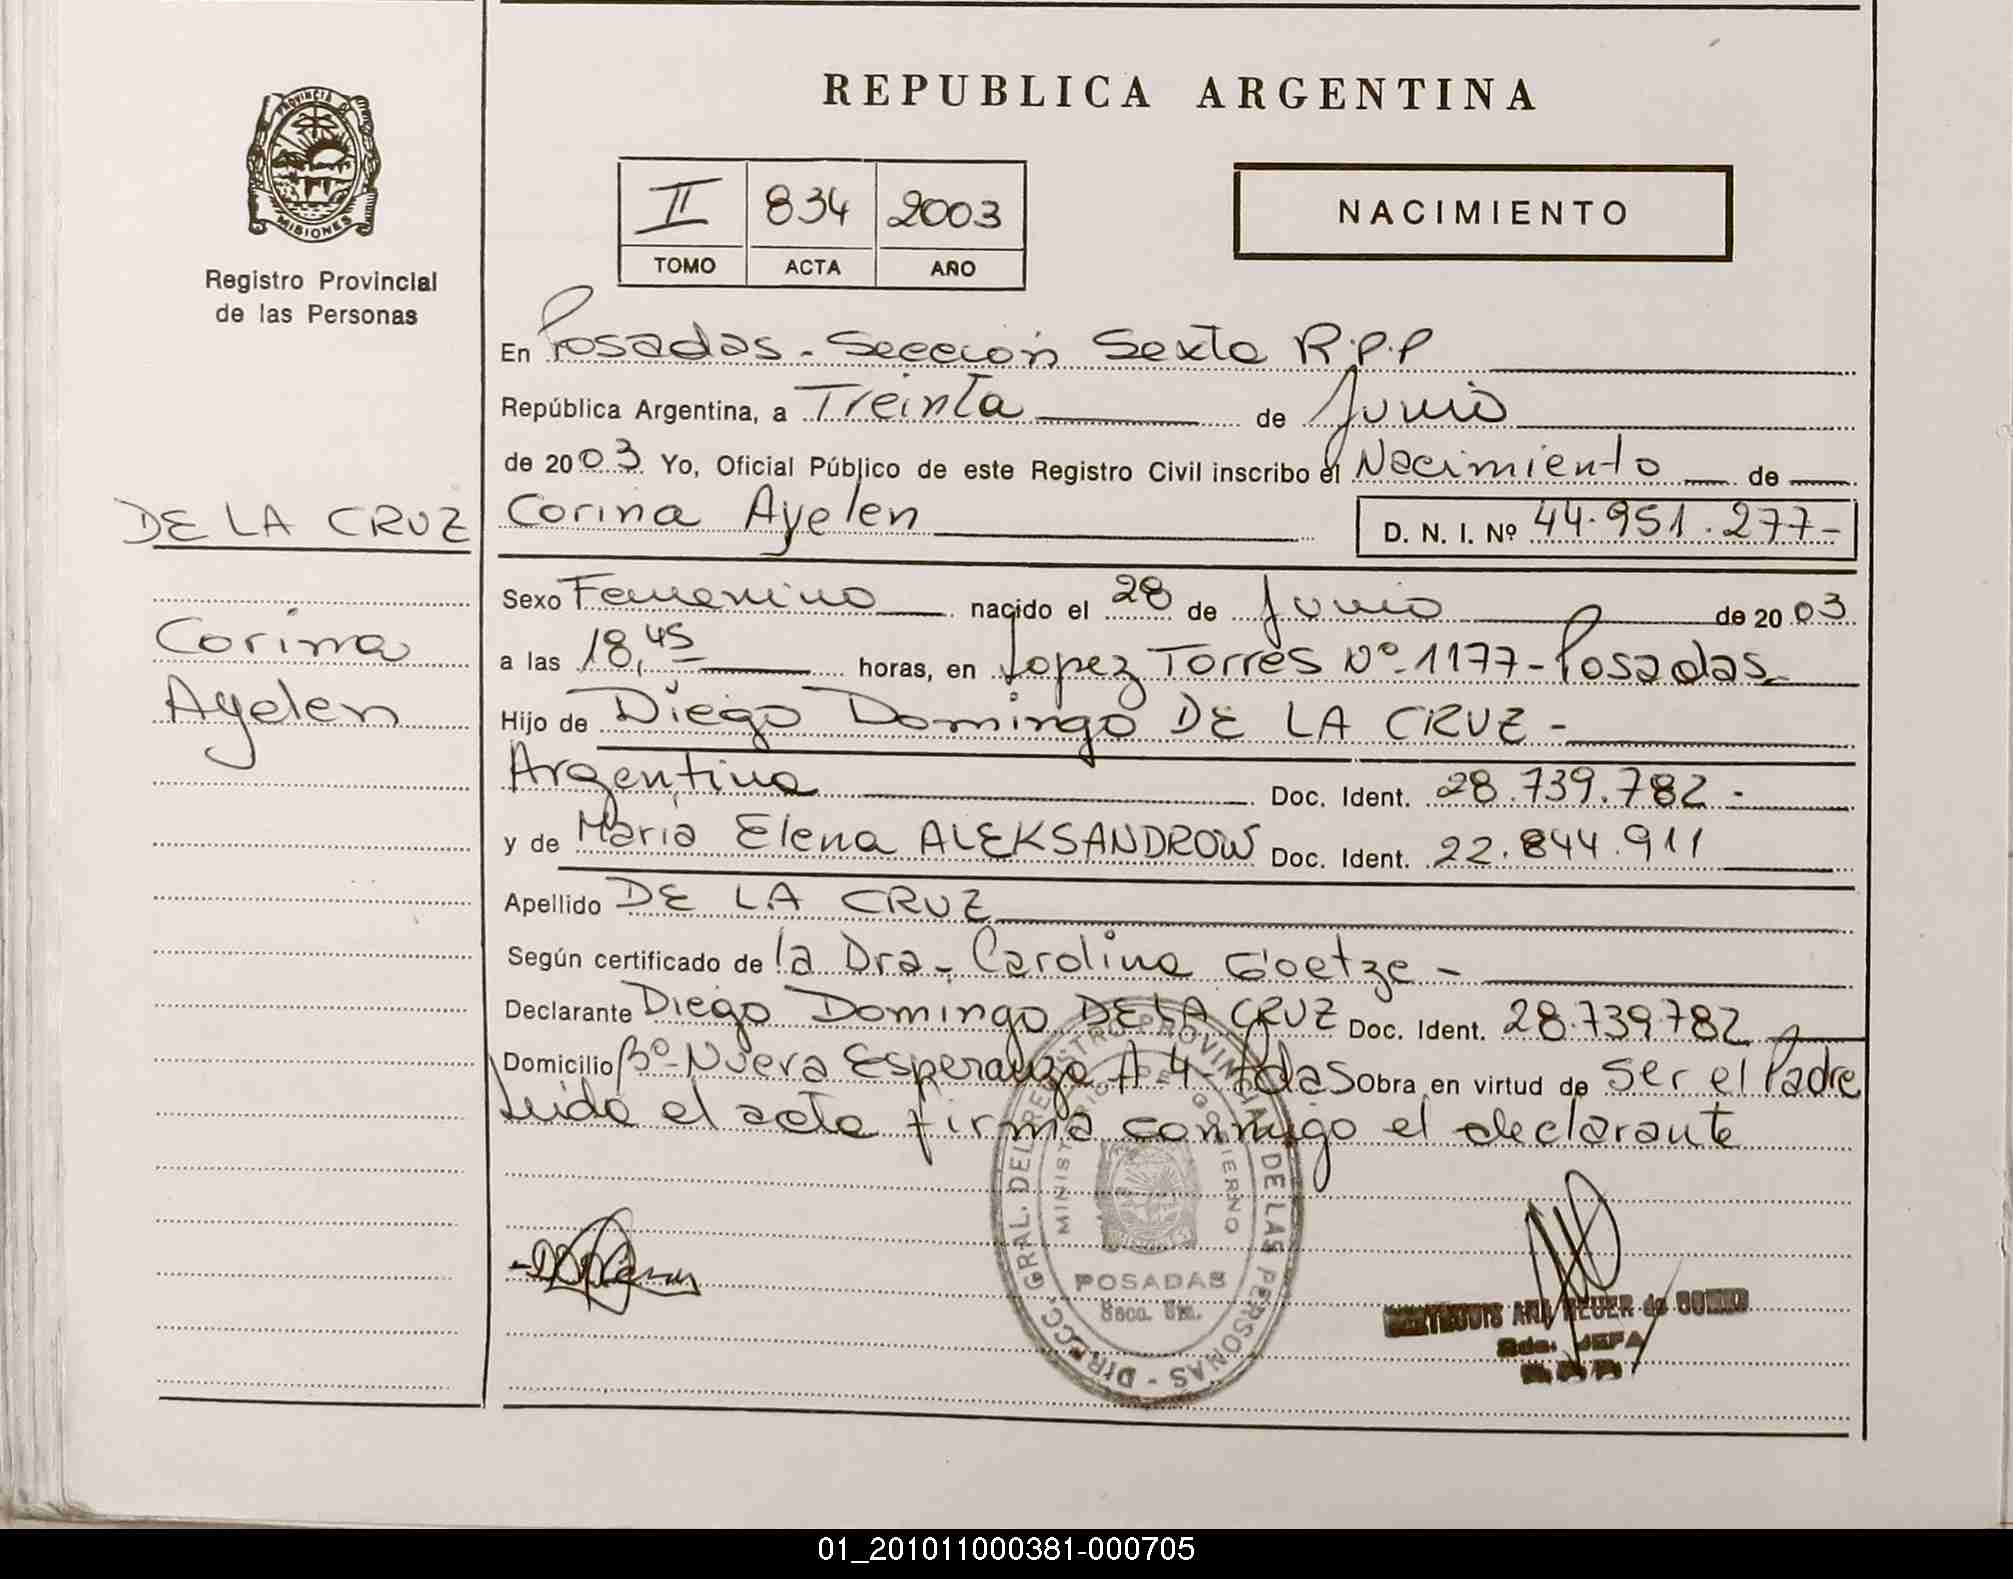 REPUBLICA ARGENTINA
PROVINCIA D
MISIONES
Registro Provincial
de las Personas
II 834 2003
TOMO ACTA AÑO
NACIMIENTO
En Posadas - Sección Sexta R.P.P
República Argentina, a Treinta de Junio
de 2003 Yo, Oficial Público de este Registro Civil inscribo el Nacimiento de
DE LA CRUZ
Corina Ayelen D. N. I. Nº 44.951.277-
Corina
Ayelen
Sexo Femenino nacido el 28 de Junio de 2003
a las 18,45 horas, en Lopez Torres Nº 1177 - Posadas
Hijo de Diego Domingo DE LA CRUZ -
Argentina Doc. Ident. 28.739.782 -
y de Maria Elena ALEKSANDROW Doc. Ident. 22.844.911
Apellido DE LA CRUZ
Según certificado de la Dra. Carolina Goetze -
Declarante Diego Domingo DE LA CRUZ Doc. Ident. 28.739.782
Domicilio Bº Nueva Esperanza A 4 - Pdas Obra en virtud de ser el Padre
Leida el acta firma conmigo el declarante
DIRECC. GRAL. DEL REGISTRO PROVINCIAL DE LAS PERSONAS -
MINISTERIO DE GOBIERNO
POSADAS
Secc.
ANA NEUER de
JEFA
01_201011000381-000705